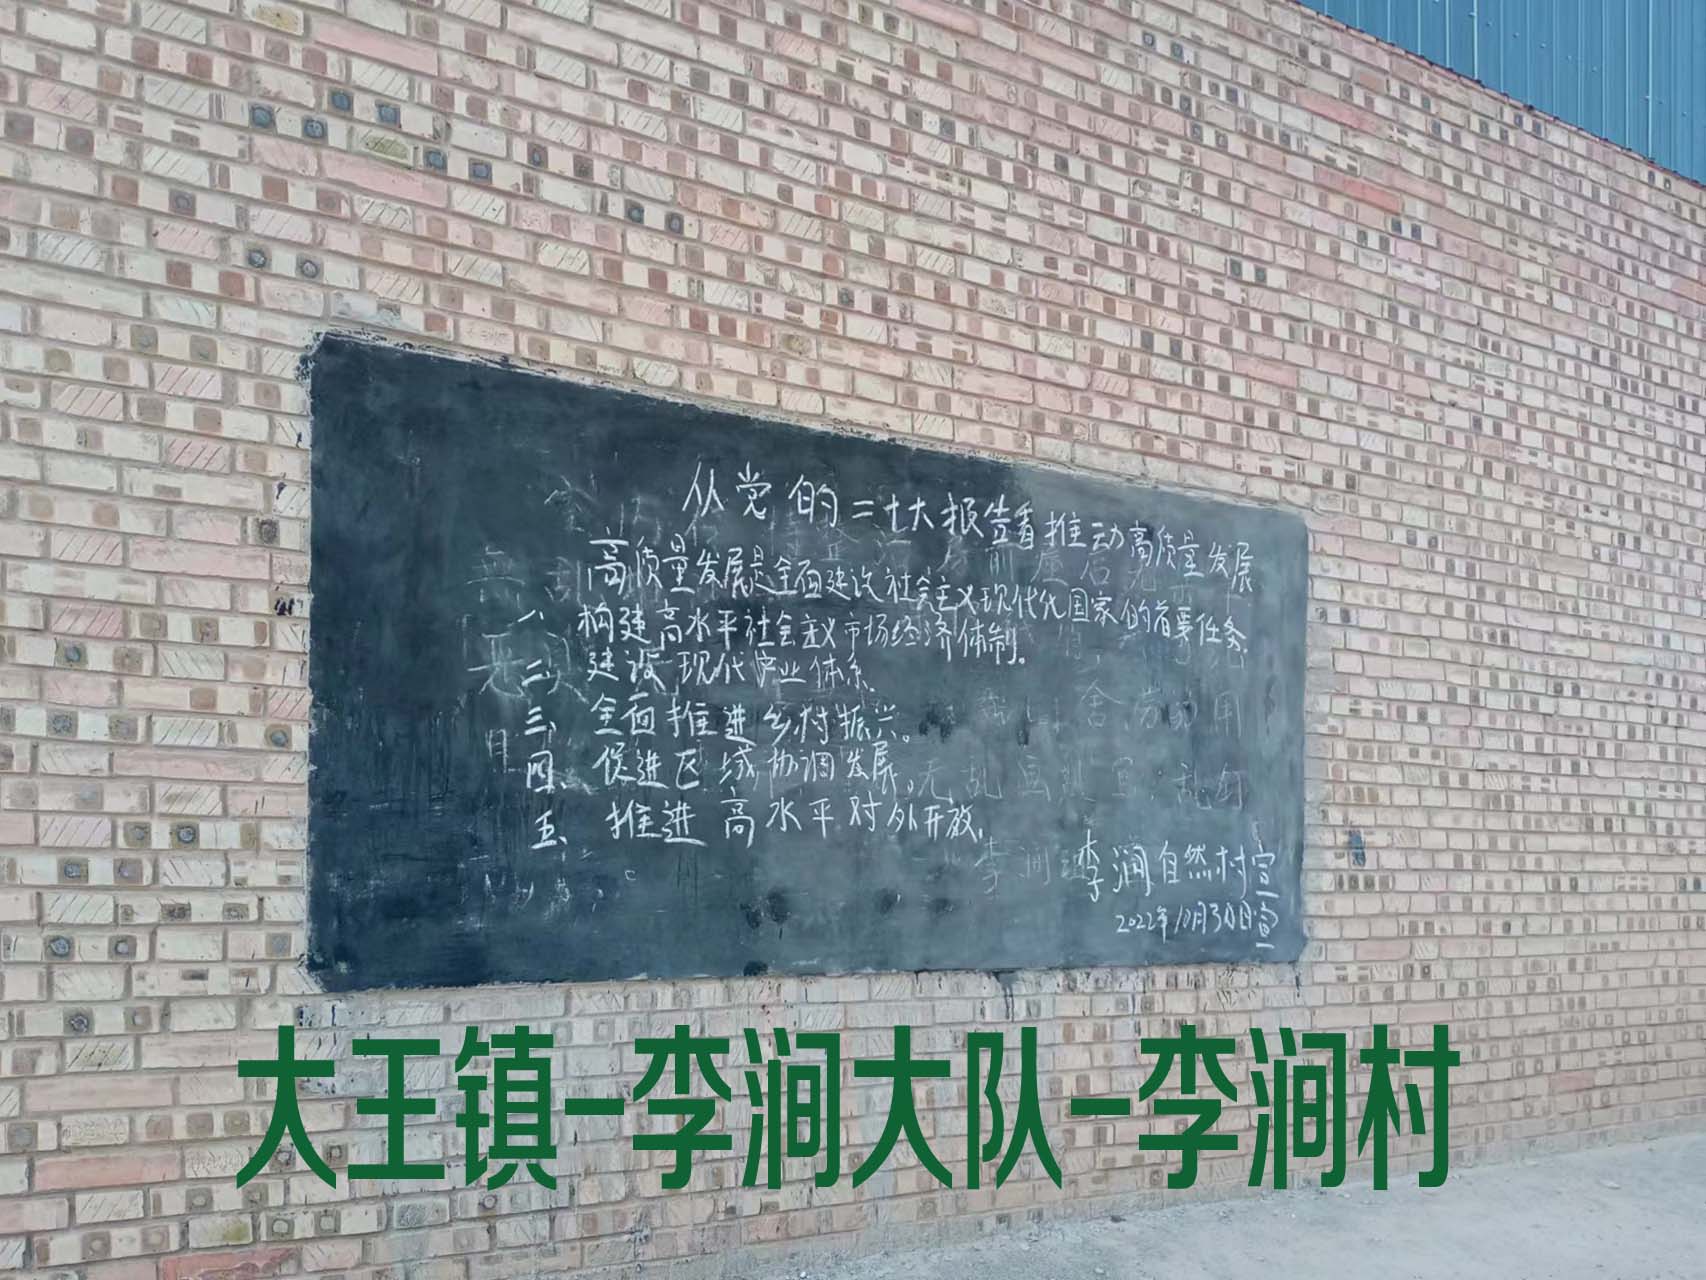 从党的二十大报告看推动高质量发展
高质量发展是全面建设社会主义现代化国家的首要任务.
一、构建高水平社会主义市场经济体制。
二、建设现代产业体系.
三、全面推进乡村振兴。
四、促进区域协调发展。
五、推进高水平对外开放.
李涧自然村宣
2022年10月30日宣
大王镇-李涧大队-李涧村